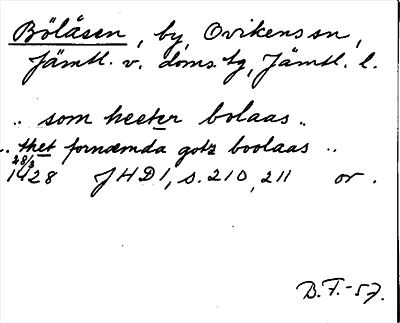 Bölåsen, by, Ovikens sn,
Jämtl. v. doms. tg, Jämtl. l.
.. som heeter bolaas ..
.. thet fornæmda gotz boolaas ..
28/3 1428 JHD 1, s. 210, 211 or.
B.F.-57.